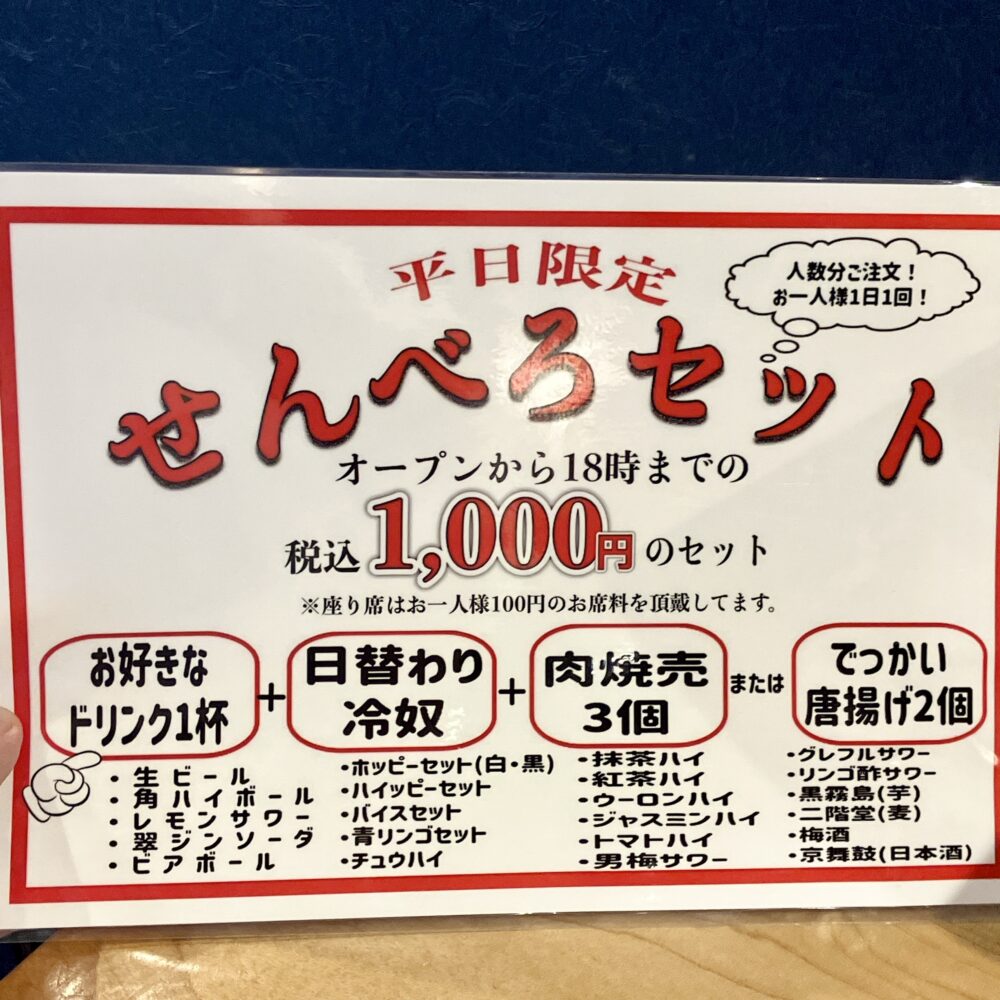 平日限定
人数分ご注文!
お一人様1日1回!
せんべろセット
オープンから18時までの
税込1,000円のセット
※座り席はお一人様100円のお席料を頂戴してます。
お好きな
ドリンク1杯
+
日替わり
冷奴
+
肉焼売
3個
または
でっかい
唐揚げ2個
・生ビール
・角ハイボール
・レモンサワー
・翠ジンソーダ
・ビアボール
・ホッピーセット(白・黒)
・ハイッピーセット
・バイスセット
・青リンゴセット
・チュウハイ
・抹茶ハイ
・紅茶ハイ
・ウーロンハイ
・ジャスミンハイ
・トマトハイ
・男梅サワー
・グレフルサワー
・リンゴ酢サワー
・黒霧島(芋)
・二階堂(麦)
・梅酒
・京舞鼓(日本酒)